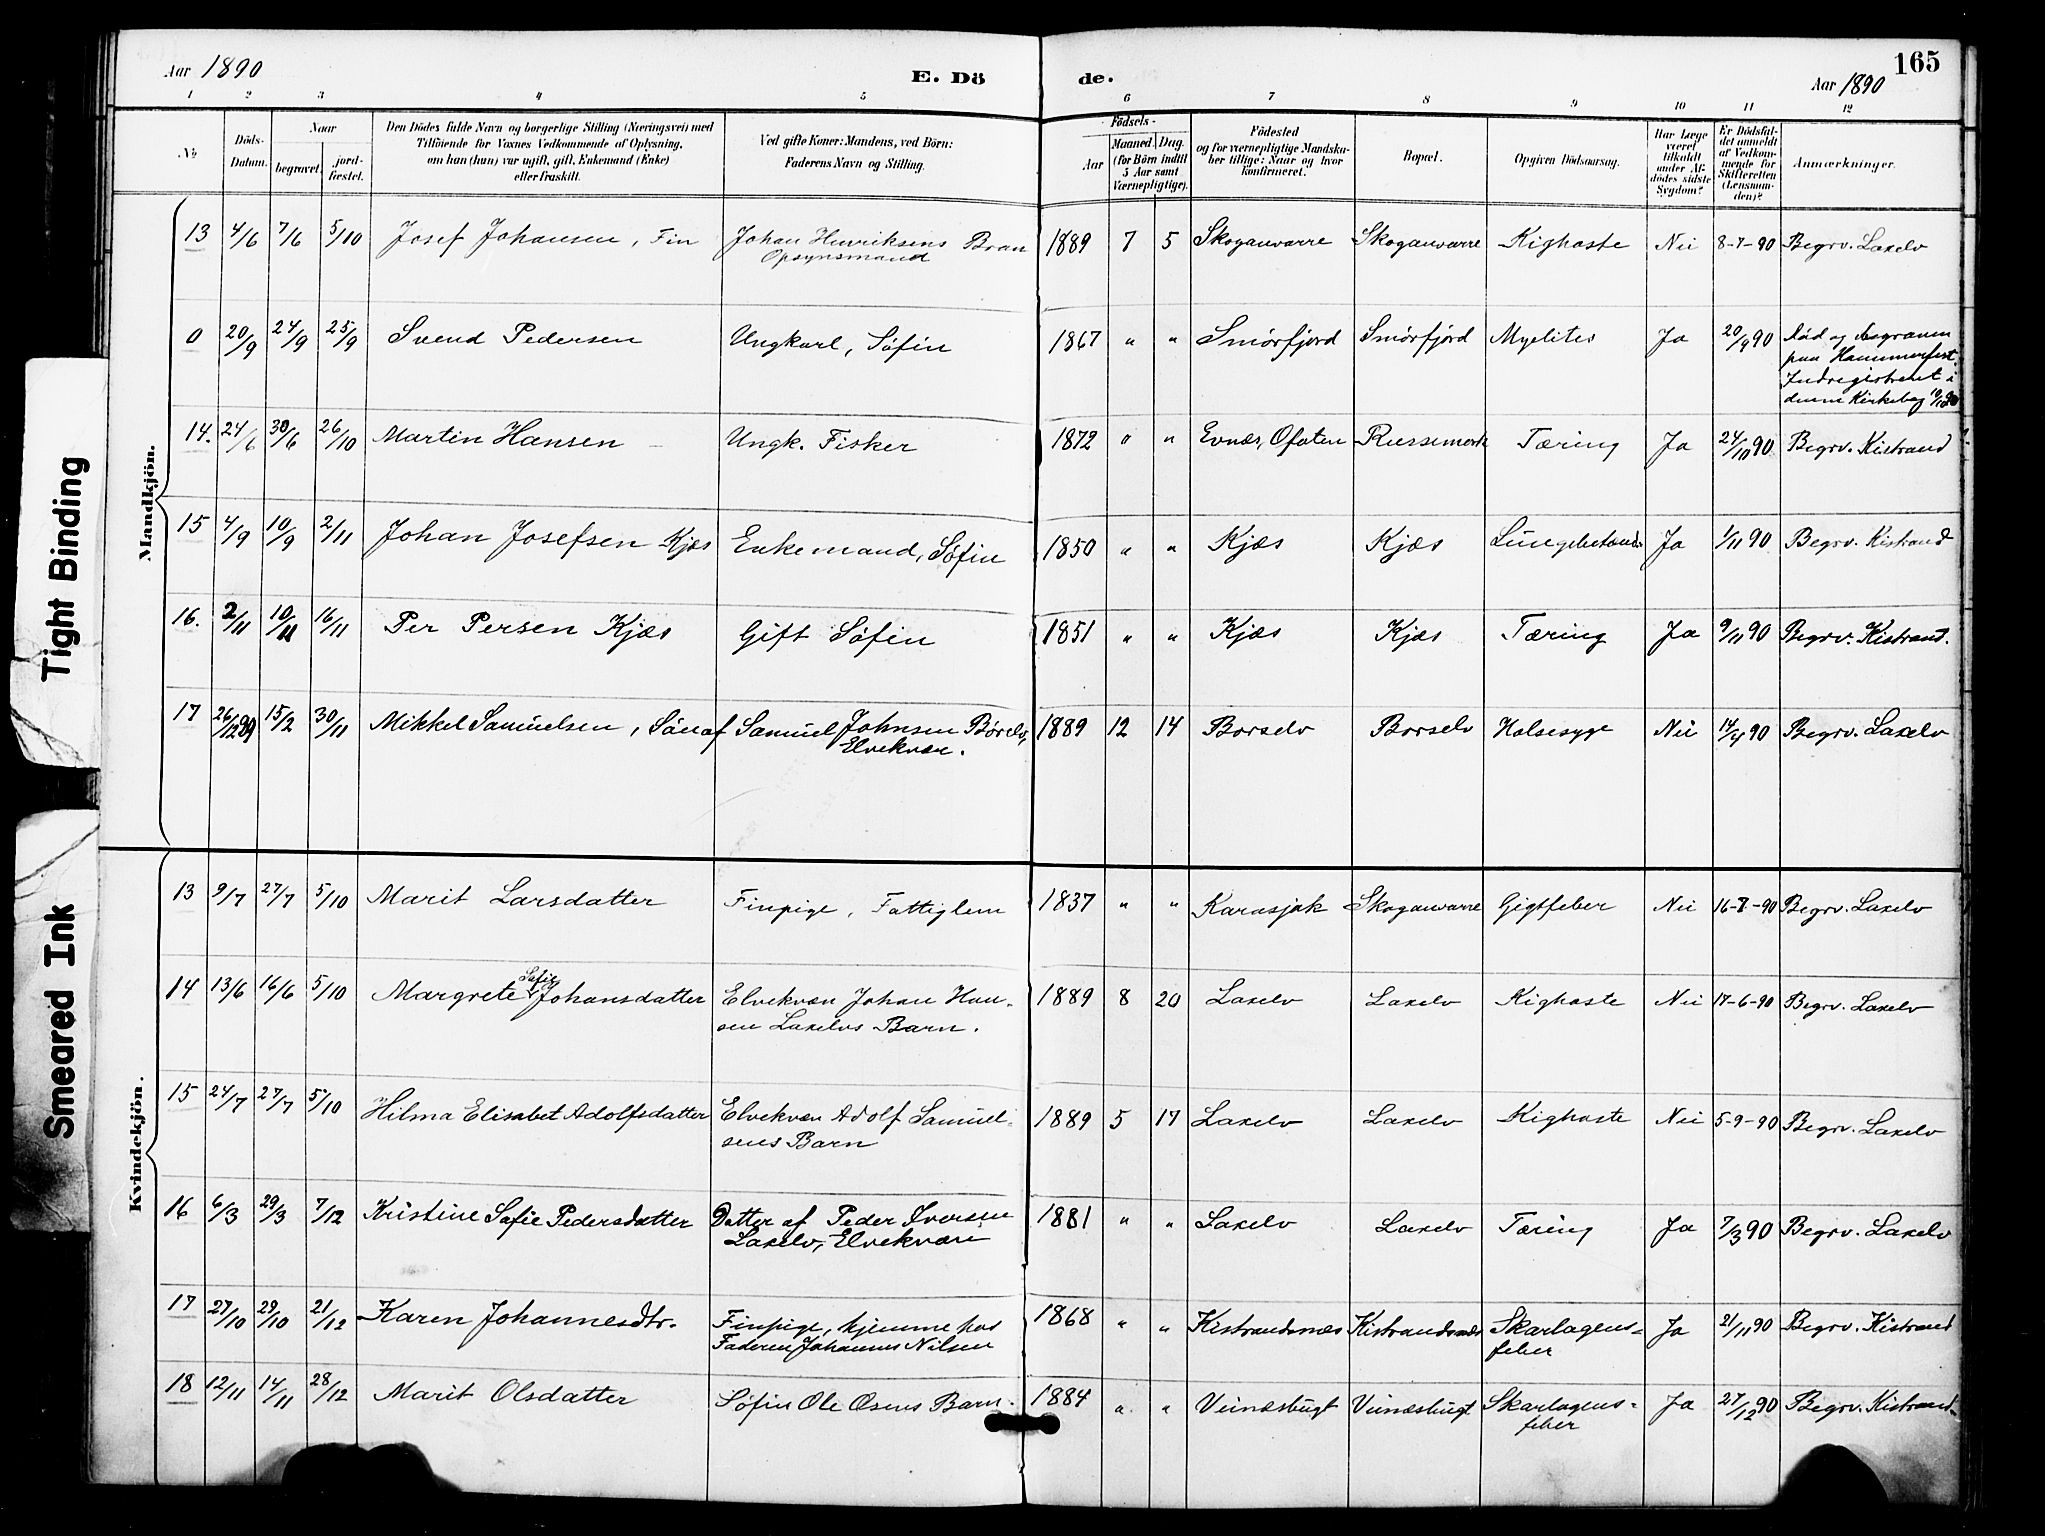 Aar 1890
E. Döde.
165
Aar 1890
1 2 3 4 5 6 7 8 9 10 11 12
No
Döds-Datum.
Naar
begravet.
jord-fæstet.
Den Dödes fulde Navn og borgerlige Stilling (Næringsvei) med
Tilföiende for Voxnes Vedkommende af Oplysning,
om han (hun) var ugift, gift, Enkemand (Enke)
eller fraskilt.
Ved gifte Koner: Mandens, ved Börn:
Faderens Navn og Stilling.
Födsels-
Aar
Maaned. Dag.
(for Börn indtil
5 Aar samt
Værnepligtige).
Födested
og for værnepligtige Mandska-
ber tillige: Naar og hvor
konfirmeret.
Bopæl.
Opgiven Dödsaarsag.
Har Læge
været
tilkaldt
under Af-
dödes sidste
Sygdom?
Er Dödsfal-
det anmeldt
af Vedkom-
mende for
Skifteretten
(Lensman-
den)?
Anmærkninger.
Mandkjön.
13 4/6 7/6 5/10 Josef Johansen, Fin Johan Henriksens Bran 1889 7 5 Skoganvarre Skoganvarre Kighoste Nei 8-7-90 Begrv. Laxelv
Opsynsmand
0 20/9 24/9 25/9 Svend Pedersen Ungkarl, Søfin 1867 " " Smörfjord Smörfjord Myelites Ja 20/9 90 Död og begraven
paa Hammerfest
Indregistreret i
denne Kirkebog
14. 24/6 30/6 26/10 Martin Hansen Ungk. Fisker 1872 " " Evnæs, Ofoten Russemark Tæring Ja 24/10 90 Begrv. Kistrand
15 4/9 10/9 2/11 Johan Josefsen Kjæs Enkemand, Søfin 1850 " " Kjæs Kjæs Ja 1/11 90 Begrv. Kistrand
16. 2/11 10/11 16/11 Per Persen Kjæs Gift Søfin 1851 " " Kjæs Kjæs Tæring Ja 9/11 90 Begrv. Kistrand.
17 26/12 89 15/2 30/11 Mikkel Samuelsen, Sön af Samuel Johnsen Börselv, 1889 12 14 Borselv Borselv Halsesyge Nei 14/4 90 Begrv. Laxelv
Elvekvæn.
Kvindekjön.
13 9/7 27/7 5/10 Marit Larsdatter Finpige, Fattiglem 1837 " " Karasjok Skoganvarre Gigtfeber Nei 16-7-90 Begrv. Laxelv
14 13/6 16/6 5/10 Margrete Sofie Johansdatter Elvekvæn Johan Han- 1889 8 20 Laxelv Laxelv Kighoste Nei 17-6-90 Begrv. Laxelv
sen Laxelvs Barn.
15 24/7 27/7 5/10 Hilma Elisabet Adolfsdatter Elvekvæn Adolf Samuel- 1889 5 17 Laxelv Laxelv Kighoste Nei 5-9-90 Begrv. Laxelv
sens Barn
16 6/3 29/3 7/12 Kristine Safie Pedersdatter Datter af Peder Iversen 1881 " " Laxelv Laxelv Tæring Ja 7/3 90 Begrv. Laxelv
Laxelv, Elvekvæn
17 27/10 29/10 21/12 Karen Johannesdtr. Finpige, hjemme hos 1868 " " Kistrandsnæs Kistrandsnæs Skarlagens- Ja 21/11 90 Begrv. Kistrand
Faderen Johannes Nilsen feber
18 12/11 14/11 28/12 Marit Olsdatter Søfin Ole Osens Barn. 1884 " " Veinæsbugt Veinæsbugt Skarlagens- Ja 27/12 90 Begrv. Kistrand.
feber
Tight Binding
Smeared Ink